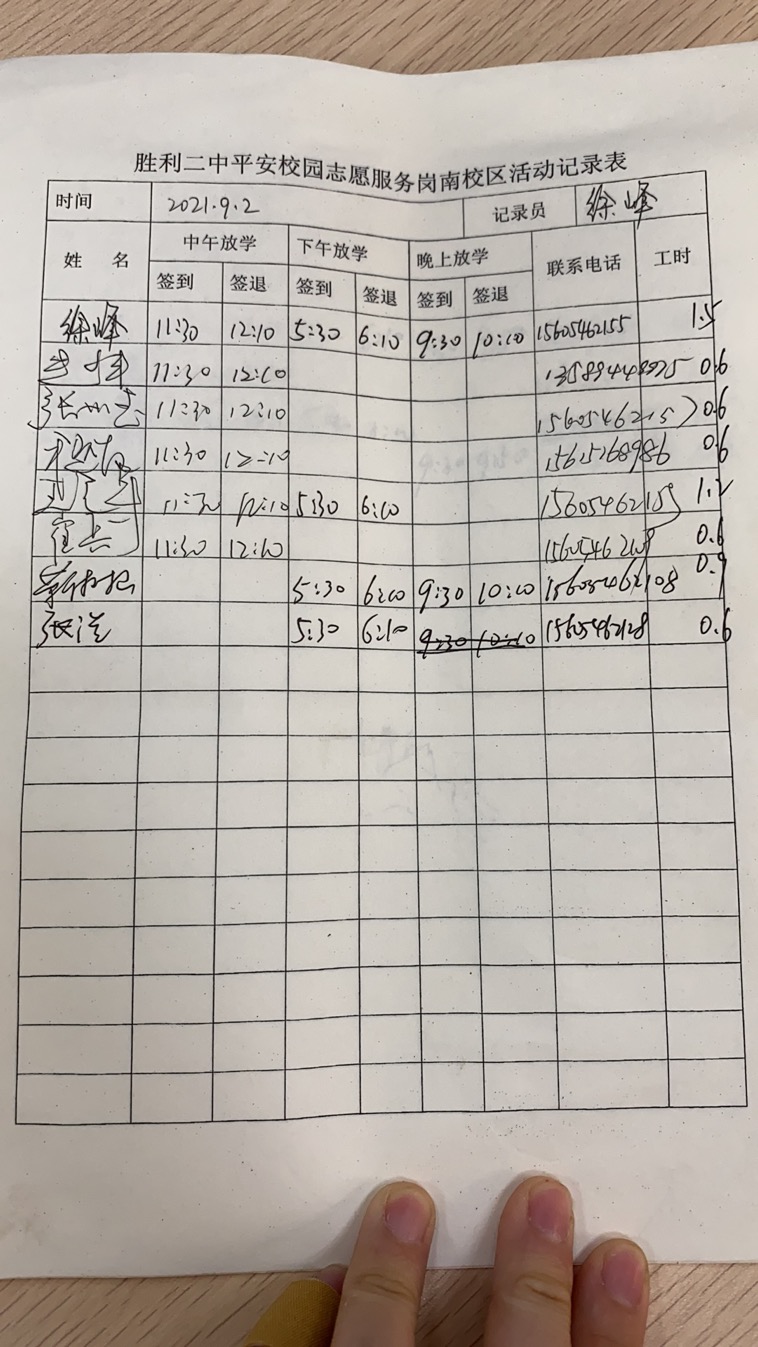 胜利二中平安校园志愿服务岗南校区活动记录表
时间 2021.9.2 记录员 徐峰
姓 名 中午放学 下午放学 晚上放学 联系电话 工时
签到 签退 签到 签退 签到 签退
徐峰 11:30 12:10 5:30 6:10 9:30 10:00 15605462155 1.5
11:30 12:10 0.6
11:30 12:10 0.6
11:30 12:10 15615268986 0.6
11:30 12:10 5:30 6:10 1.2
11:30 12:10 0.6
5:30 6:10 9:30 10:00 15605462108 0.9
张洋 5:30 6:10 9:30 10:10 15605462128 0.6